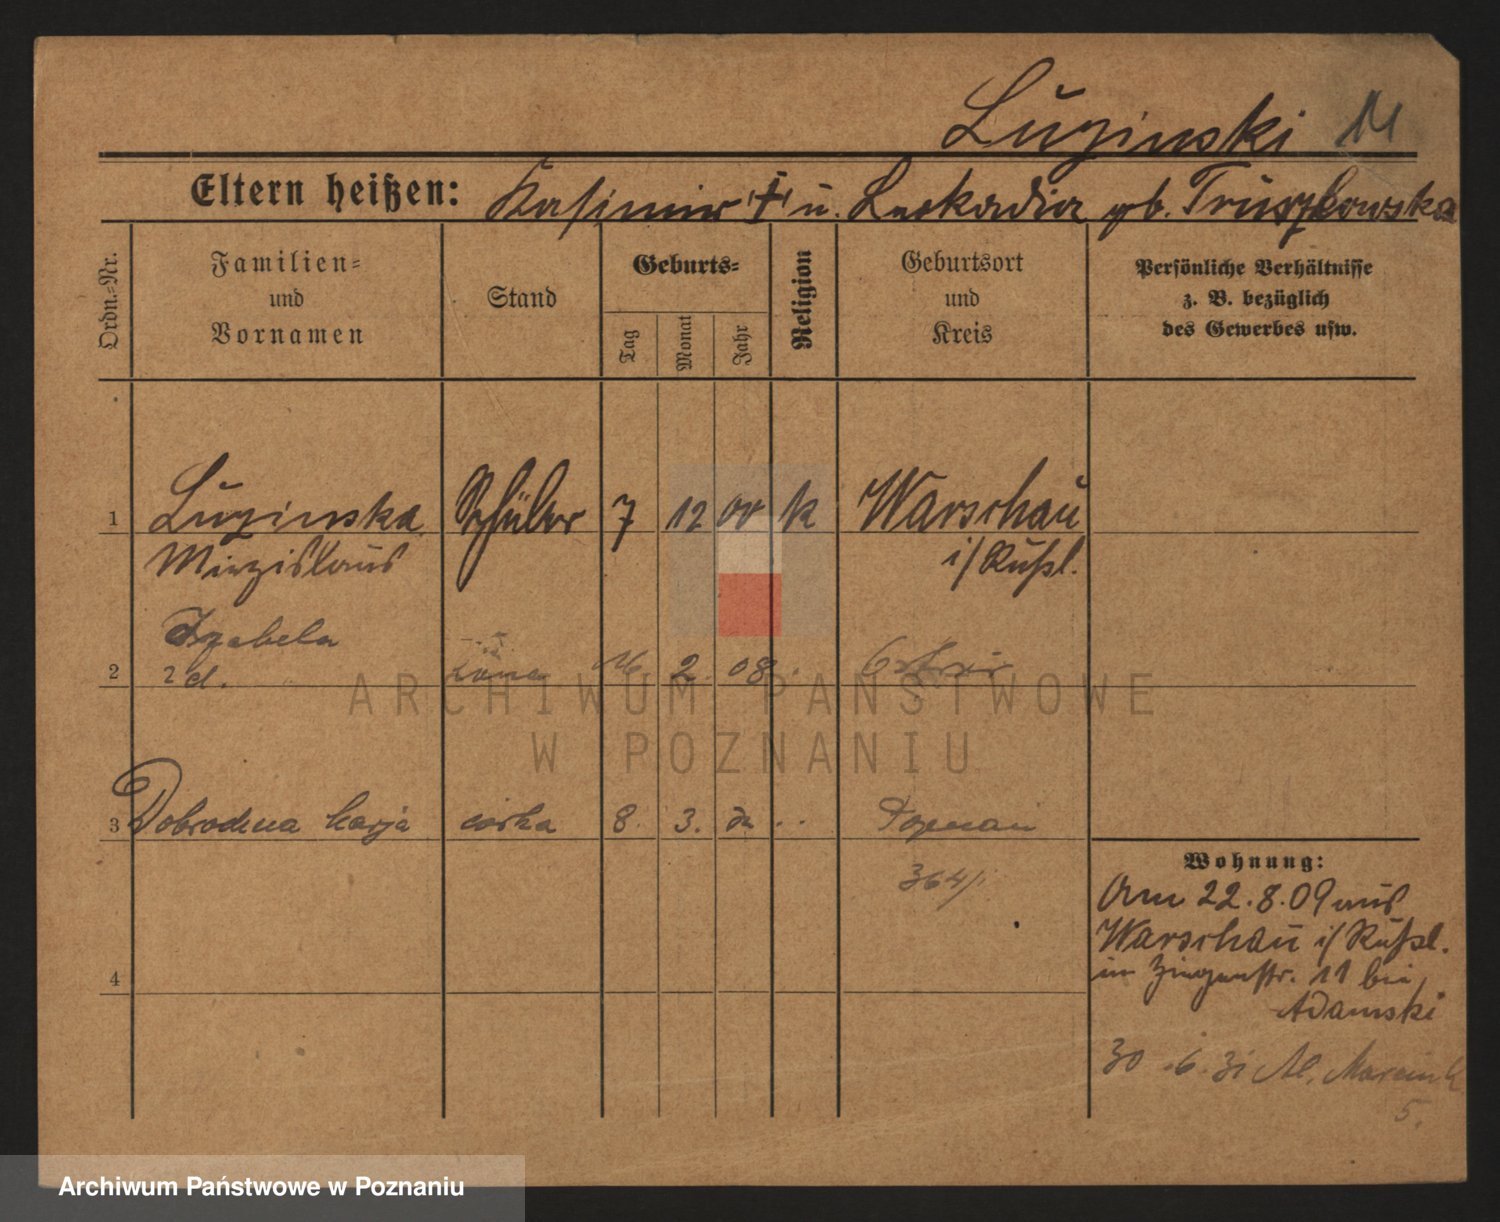 Luzinski 11
Eltern heißen: Kasimir † u. Leokadia gb. Truszkowska
Ordn.-Nr.
Familien-
und
Vornamen
Stand
Geburts-
Tag
Monat
Jahr
Religion
Geburtsort
und
Kreis
Persönliche Verhältnisse
z. B. bezüglich
des Gewerbes usw.
1 Luzinska Schüler 7 12 00 k Warschau
Miezislaus i/ Rußl.
Izabela
2 żona 16 2. 08
3 Dobrochna Marja córka 8. 3. Poznań
364/
4
Wohnung:
Am 22.8.09 aus
Warschau i/ Rußl.
in Ziegenstr. 11 bei
Adamski
30.6.31 Al. Marcink
5.
ARCHIWUM PAŃSTWOWE
W POZNANIU
Archiwum Państwowe w Poznaniu